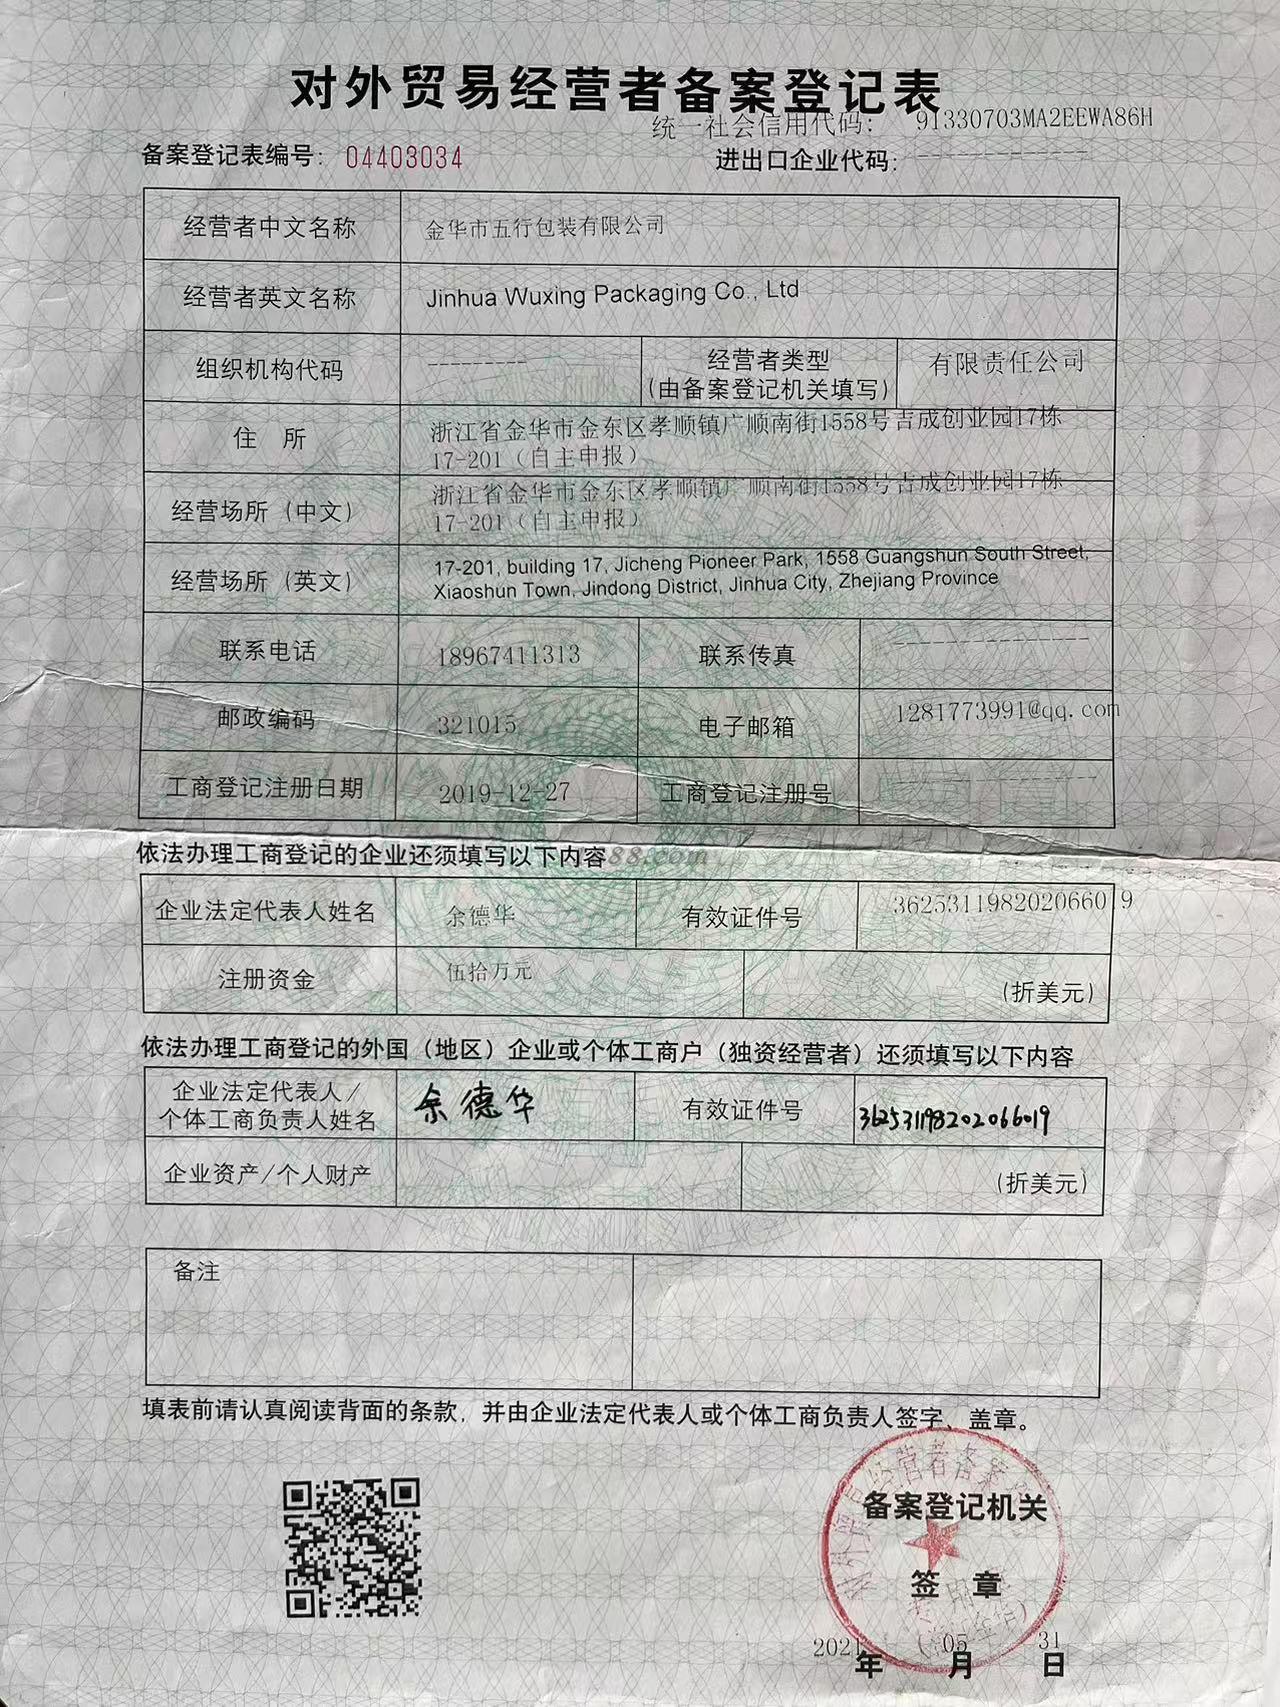 对外贸易经营者备案登记表
统一社会信用代码： 91330703MA2EEWA86H
备案登记表编号：04403034
进出口企业代码：-------------
经营者中文名称 金华市五行包装有限公司
经营者英文名称 Jinhua Wuxing Packaging Co., Ltd
组织机构代码 --------- 经营者类型 有限责任公司
(由备案登记机关填写)
住 所 浙江省金华市金东区孝顺镇广顺南街1558号吉成创业园17栋
17-201（自主申报）
经营场所（中文） 浙江省金华市金东区孝顺镇广顺南街1558号吉成创业园17栋
17-201（自主申报）
经营场所（英文） 17-201, building 17, Jicheng Pioneer Park, 1558 Guangshun South Street,
Xiaoshun Town, Jindong District, Jinhua City, Zhejiang Province
联系电话 18967411313 联系传真 ---------------
邮政编码 321015 电子邮箱 1281773991@qq.com
工商登记注册日期 2019-12-27 工商登记注册号 ---------------
依法办理工商登记的企业还须填写以下内容
88.com
企业法定代表人姓名 余德华 有效证件号 362531198202066019
注册资金 伍拾万元 (折美元)
依法办理工商登记的外国（地区）企业或个体工商户（独资经营者）还须填写以下内容
企业法定代表人/
个体工商负责人姓名 余德华 有效证件号 362531198202066019
企业资产/个人财产 (折美元)
备注
填表前请认真阅读背面的条款，并由企业法定代表人或个体工商负责人签字、盖章。
经营者备案
备案登记机关
签 章
2021年05月31日